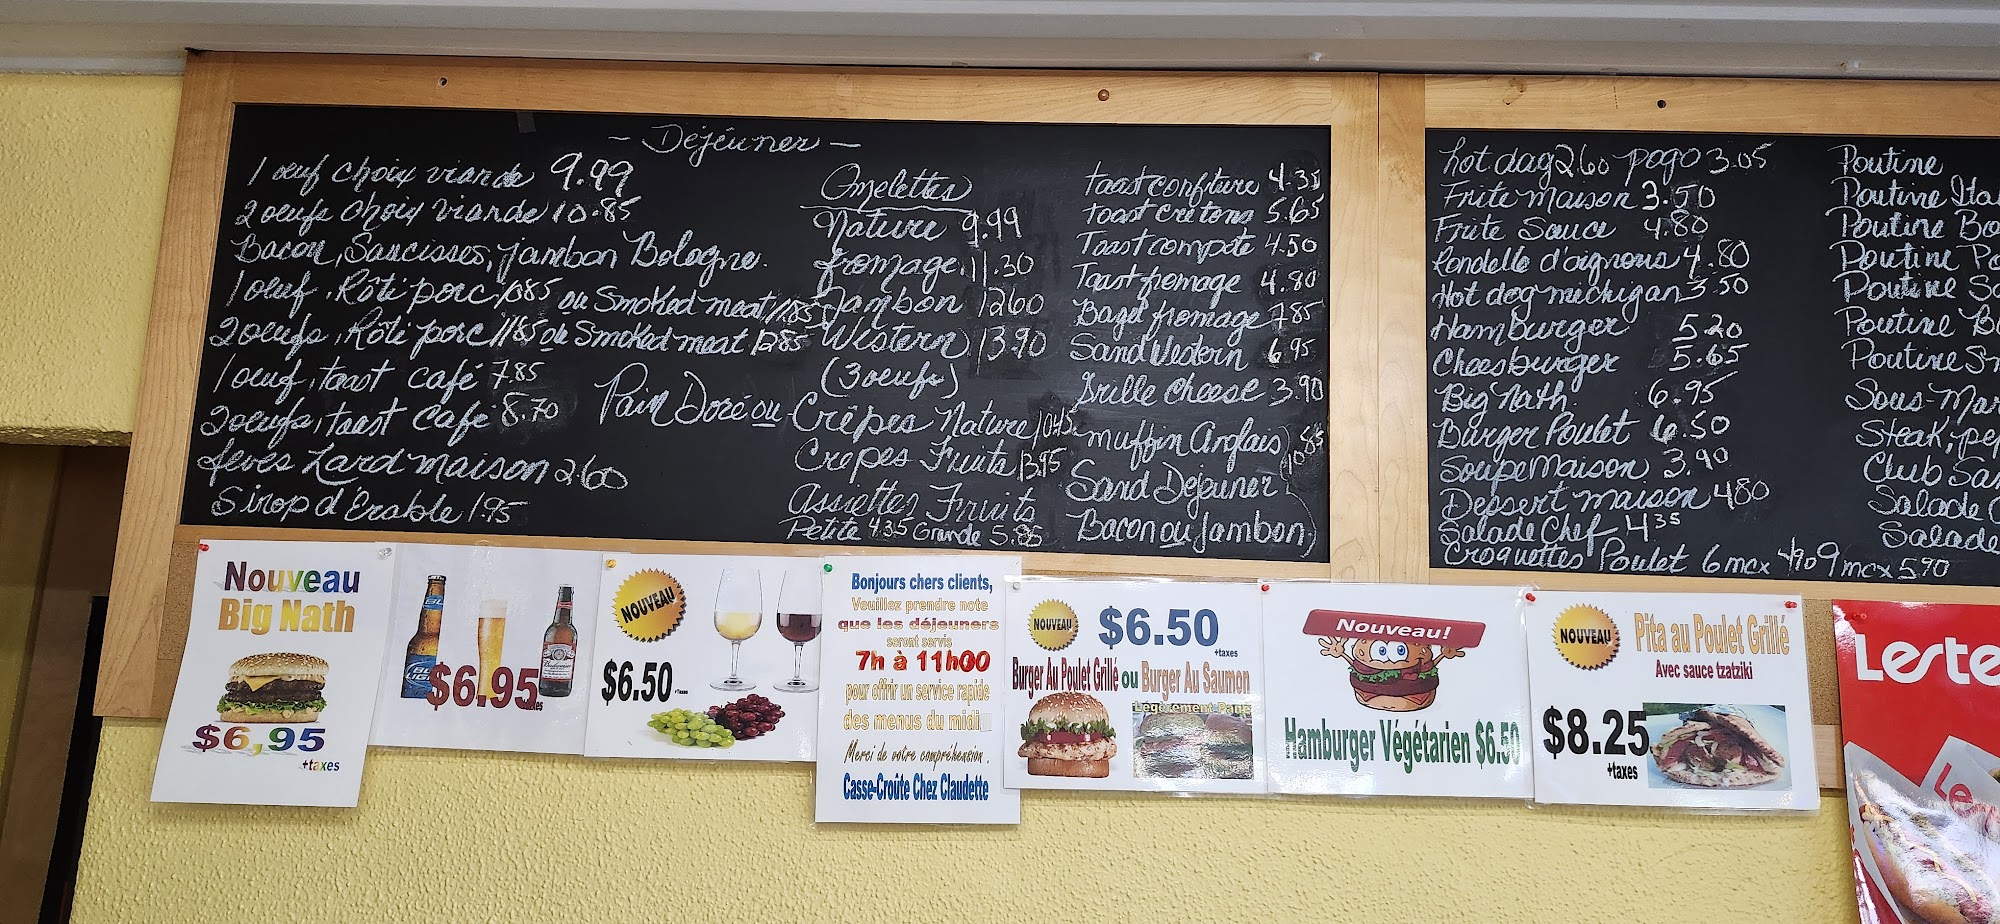 - Déjeuner -
1 oeuf choix viande 9.99
2 oeufs choix viande 10.85
Bacon, Saucisses, jambon Bologne.
1 oeuf, Rôti porc 10.85 ou Smoked meat 11.85
2 oeufs, Rôti porc 11.85 ou Smoked meat 12.85
1 oeuf, toast café 7.85
2 oeufs, toast café 8.70
fèves Lard maison 2.60
Sirop d'Érable 1.95
Pain Doré ou
Omelettes
Nature 9.99
fromage 11.30
Jambon 12.60
Western 13.90
(3 oeufs)
Crêpes Nature 10.45
Crêpes Fruits 13.95
Assiettes Fruits
Petite 4.35 Grande 5.85
toast confiture 4.35
toast cretons 5.65
Toast compote 4.50
Toast fromage 4.80
Bagel fromage 7.85
Sand Western 6.95
Grille cheese 3.90
muffin Anglais 10.85
Sand Dejeuner
Bacon ou Jambon
hot dog 2.60 pogo 3.05
Frite maison 3.50
Frite Sauce 4.80
Rondelle d'oignons 4.80
Hot dog michigan 3.50
Hamburger 5.20
Cheesburger 5.65
Big Nath 6.95
Burger Poulet 6.50
Soupe Maison 3.90
Dessert maison 4.80
Salade Chef 4.35
Croquettes Poulet 6 mcx 4.90 9 mcx 5.90
Poutine
Poutine Ita
Poutine Bo
Poutine Po
Poutine
Poutine
Poutine Sm
Sous-Mar
Steak, pep
Club San
Salade C
Salade
Nouveau
Big Nath
$6,95
+taxes
BUD LIGHT
Budweiser
$6.95
taxes
NOUVEAU
$6.50
+Taxes
Bonjours chers clients,
Veuillez prendre note
que les déjeuners
seront servis
7h à 11h00
pour offrir un service rapide
des menus du midi.
Merci de votre compréhension .
Casse-Croûte Chez Claudette
NOUVEAU
$6.50
+taxes
Burger Au Poulet Grillé ou Burger Au Saumon
Légèrement Pané
Nouveau!
Hamburger Végétarien $6.50
NOUVEAU
Pita au Poulet Grillé
Avec sauce tzatziki
$8.25
+taxes
Leste
Le